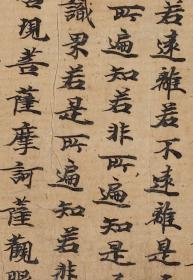 若遠離若不遠離是
所遍知若非所遍知是
識果若是所遍知若非
現菩薩摩訶薩觀